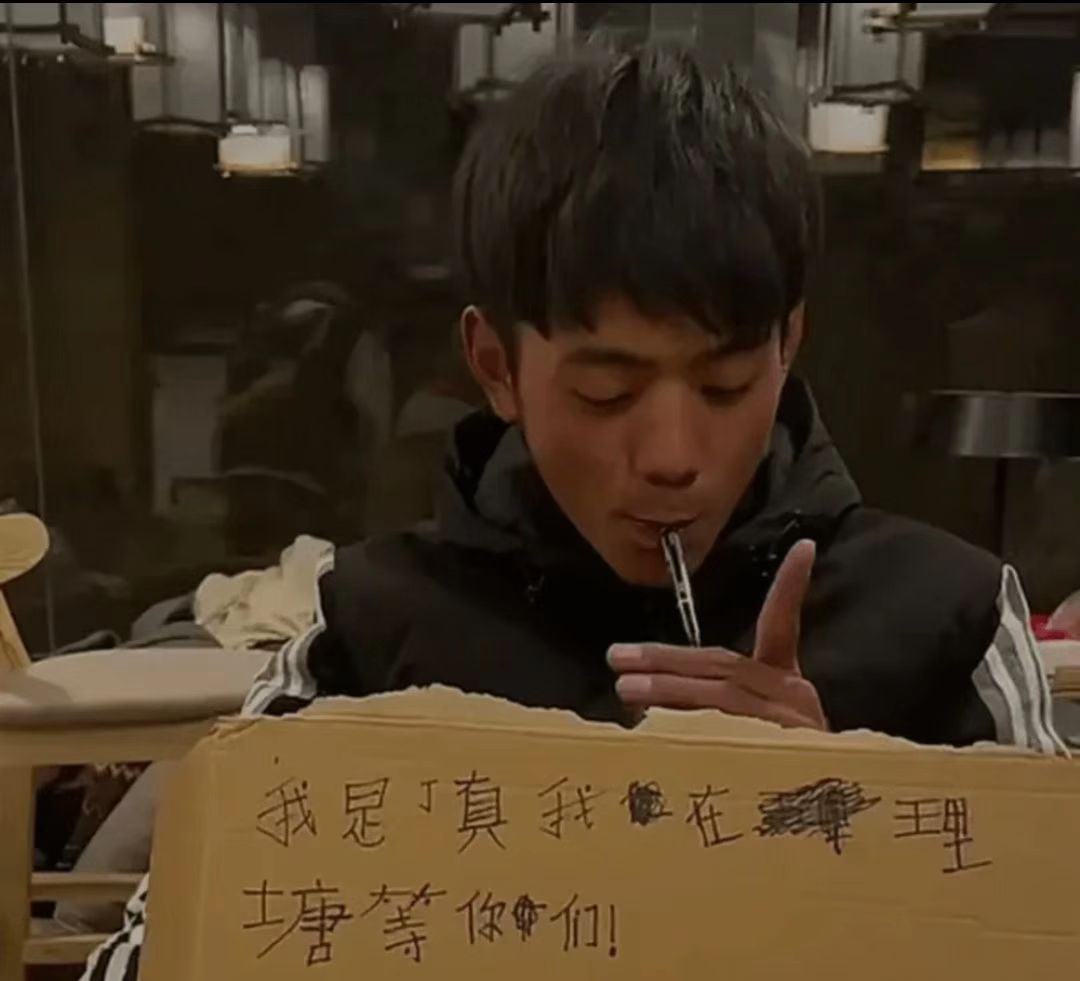 我是丁真我在理
塘等你们!